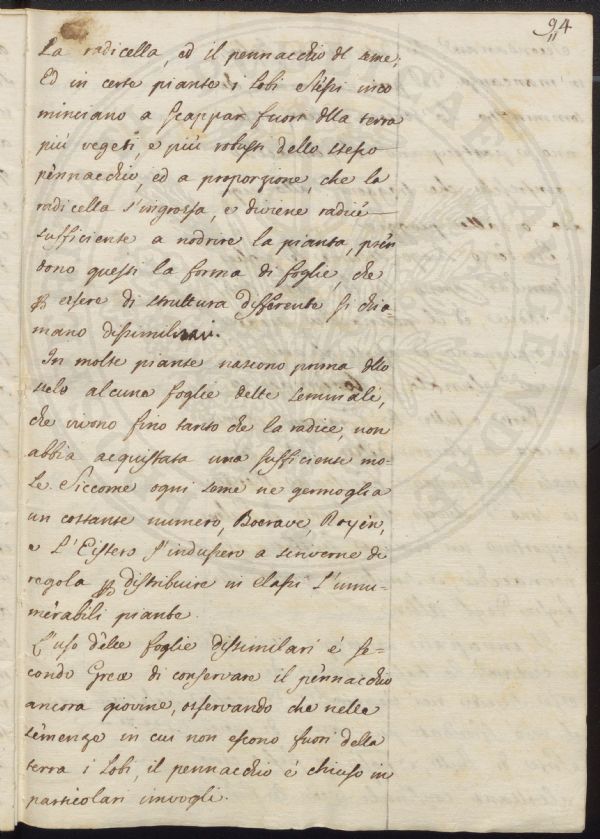 94
La radicella, ed il pennacchio del seme;
Ed in certe piante i Lobi stessi inco
minciano a scappar fuori della terra
più vegeti, e più robusti dello stesso
pennacchio, ed a proporzione, che la
radicella s'ingrossa, e diviene radice
sufficiente a nodrire la pianta, pren
dono questi la forma di foglie, che
p essere di struttura differente si chia-
mano dissimilari.
In molte piante nascono prima dello
stelo alcune foglie dette seminali,
che vivono fino tanto che la radice, non
abbia acquistata una sufficiente mo-
le. Siccome ogni seme ne germoglia
un costante numero, Boerave, Royen,
e L'Eistero s'indussero a servirne di
regola p distribuire in Classi L'innu-
merabili piante.
L'uso delle foglie dissimilari é se-
condo Grew di conservare il pennacchio
ancora giovine, osservando che nelle
semenze in cui non escono fuori della
terra i Lobi, il pennacchio é chiuso in
particolari invogli.